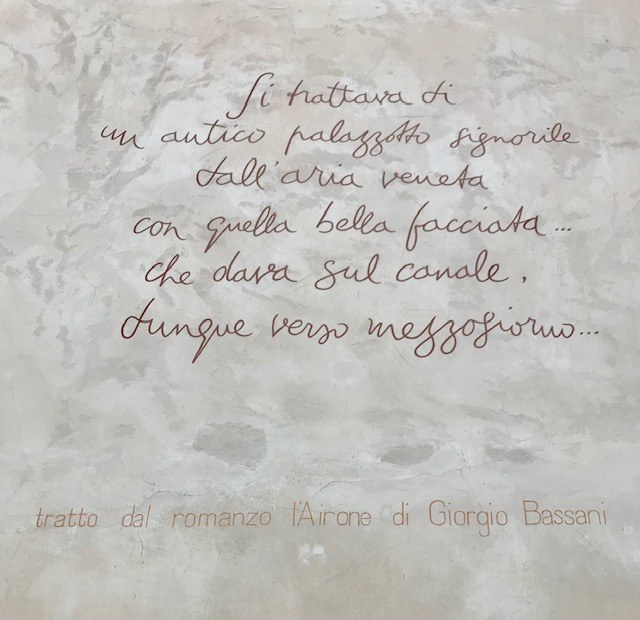 Si trattava di
un antico palazzotto signorile
dall'aria veneta
con quella bella facciata...
che dava sul canale,
dunque verso mezzogiorno...
tratto dal romanzo l'Airone di Giorgio Bassani